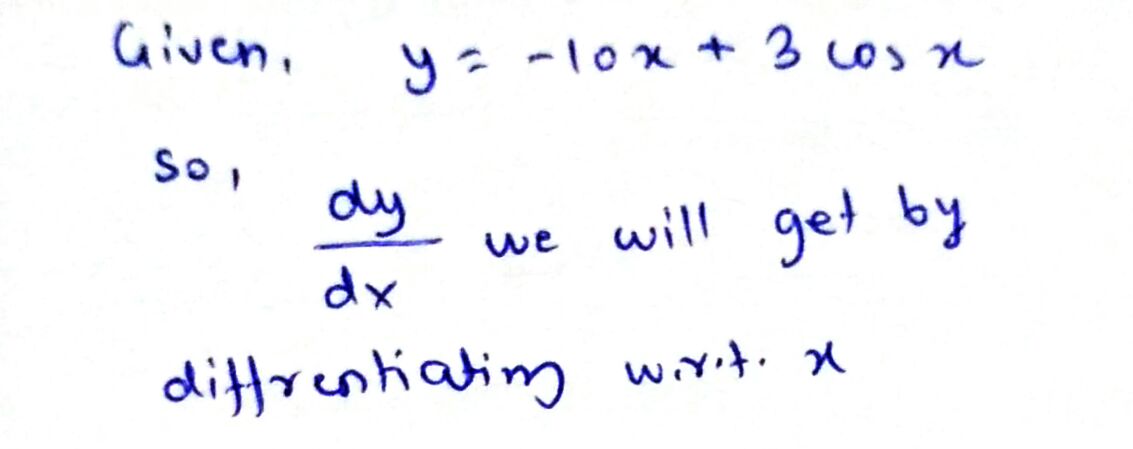 Given, y = -10x + 3 cos x
so, dy/dx we will get by
diffrentiating w.r.t. x